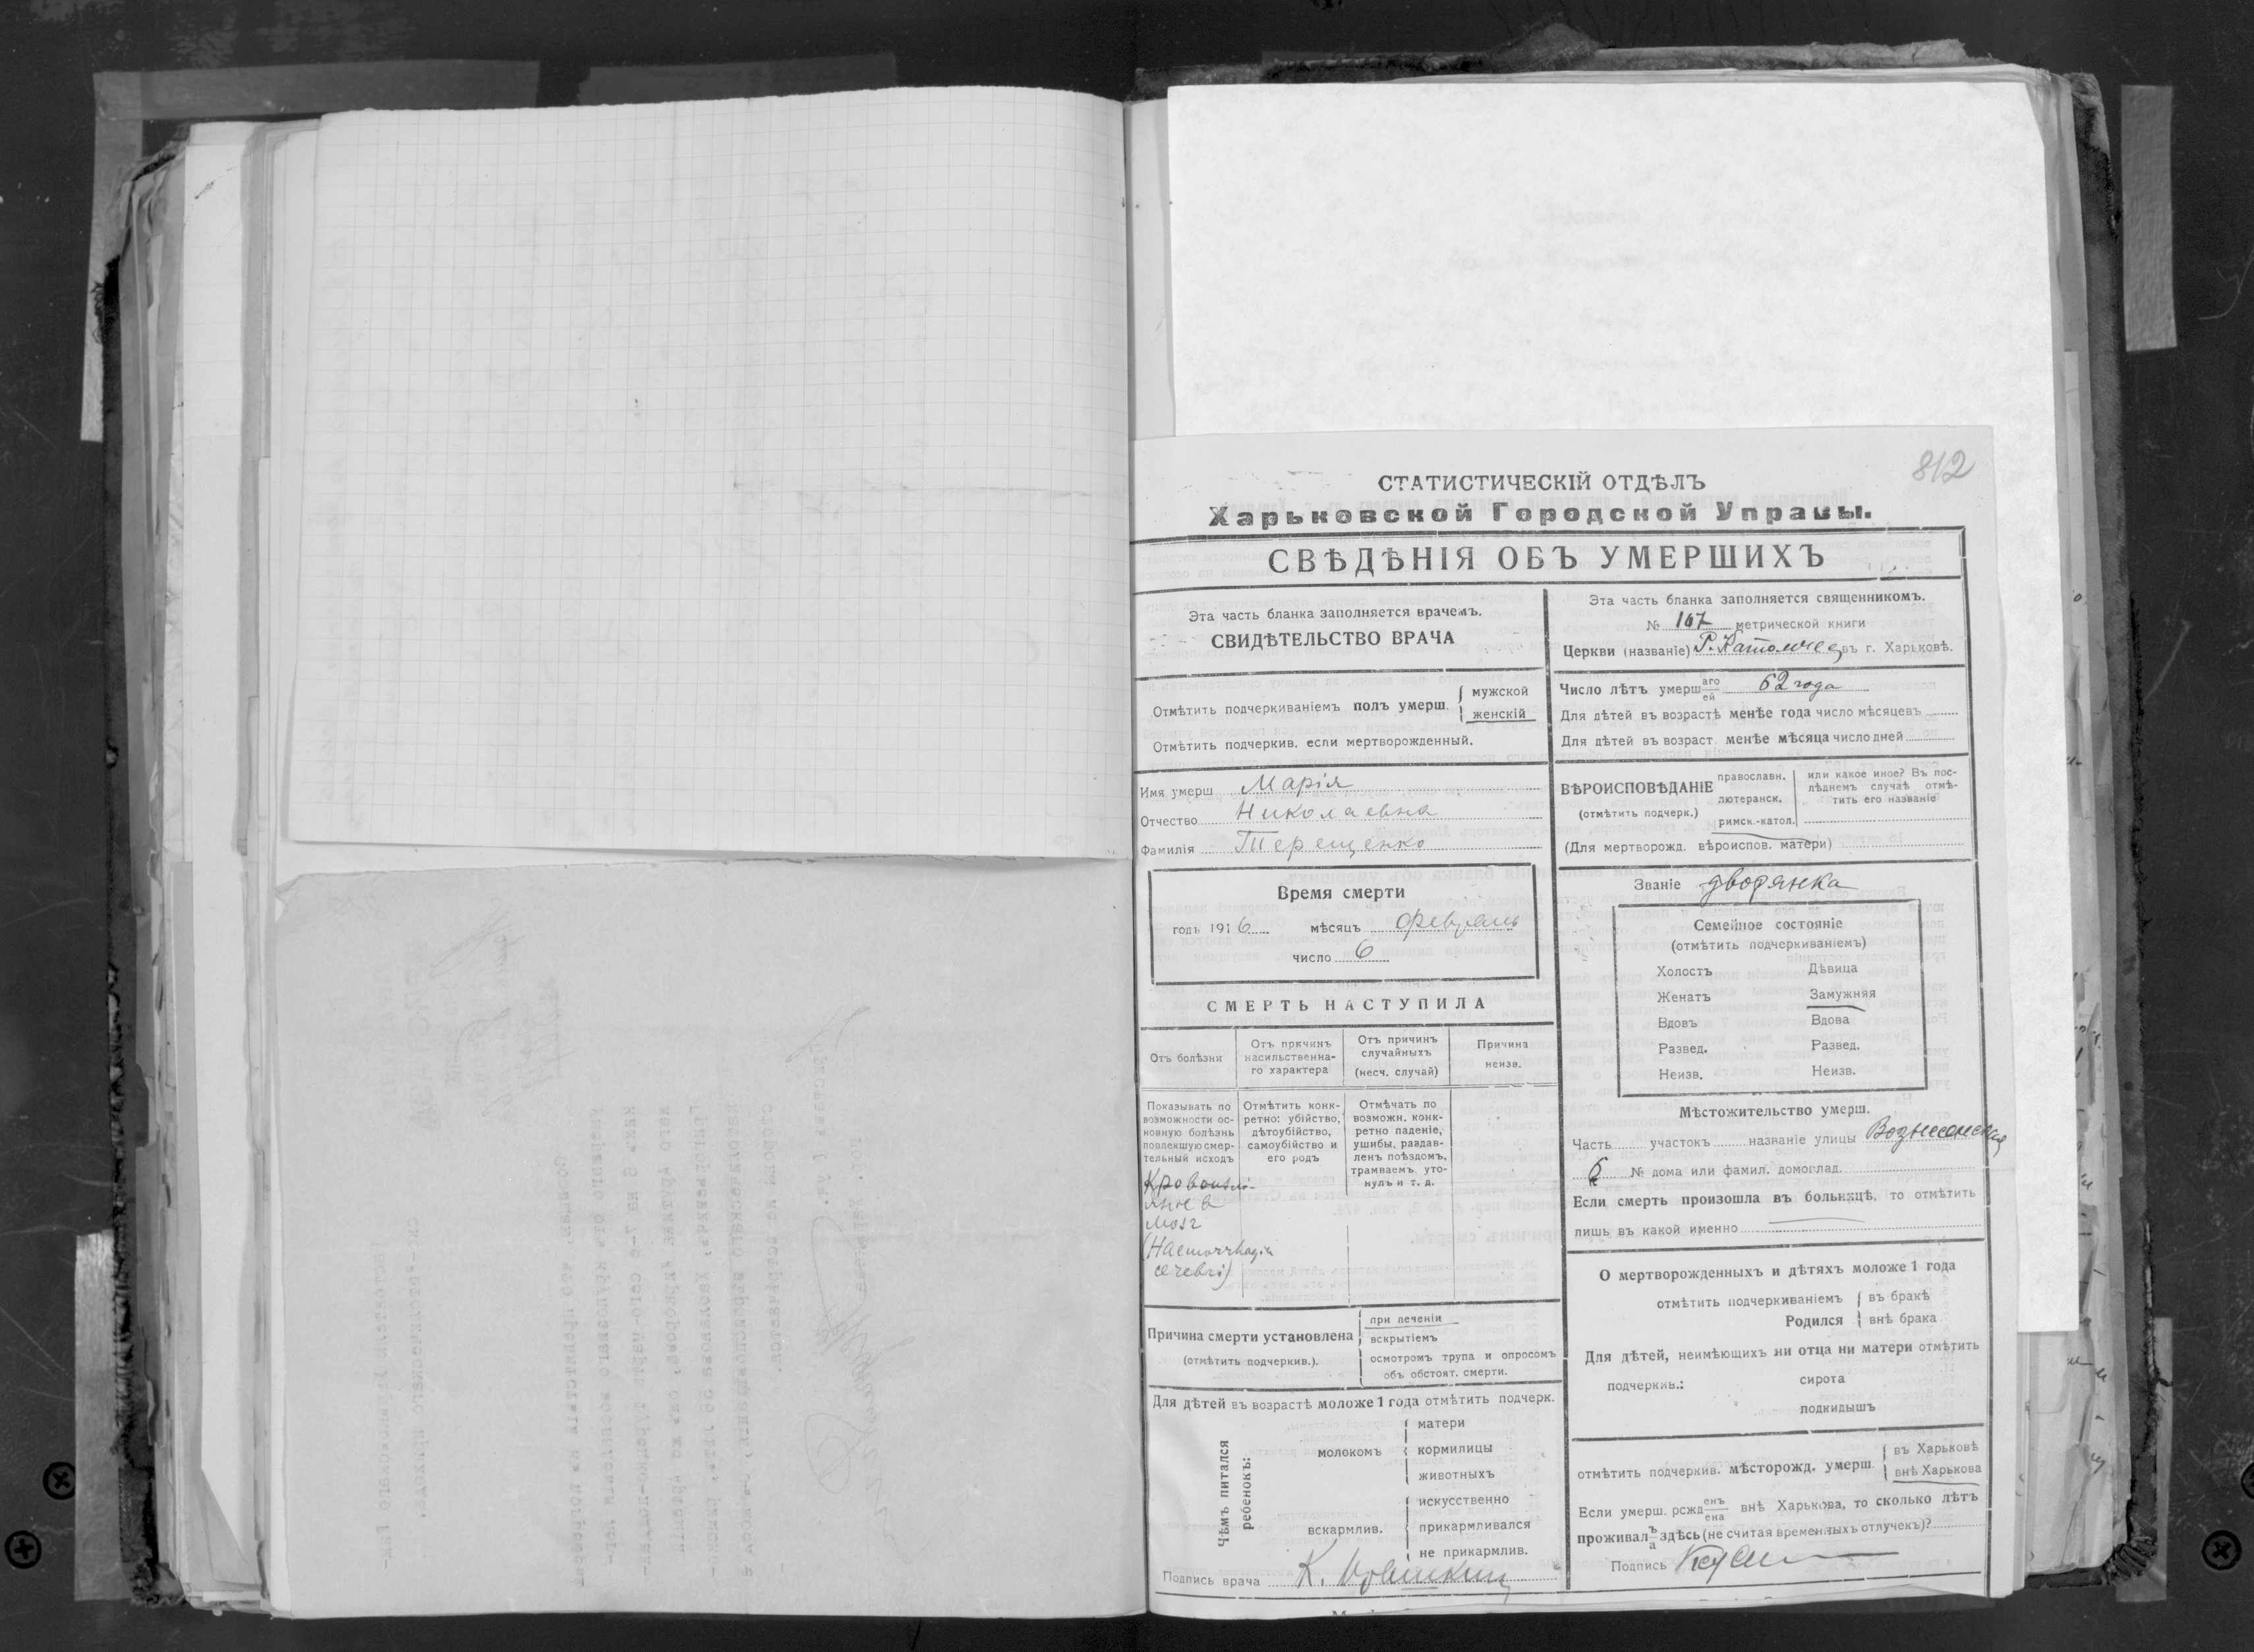 812
СТАТИСТИЧЕСКІЙ ОТДѢЛЪ
Харьковской Городской Управы.
СВѢДѢНІЯ ОБЪ УМЕРШИХЪ
Эта часть бланка заполняется врачемъ.
СВИДѢТЕЛЬСТВО ВРАЧА
Отмѣтить подчеркиваніемъ полъ умерш. мужской
женскій
Отмѣтить подчеркив. если мертворожденный.
Имя умерш Марія
Отчество Николаевна
Фамилія Терещенко
Время смерти
годъ 1916 мѣсяцъ февраль
число 6
СМЕРТЬ НАСТУПИЛА
Отъ болѣзни
Отъ причинъ
насильственна-
го характера
Отъ причинъ
случайныхъ
(несч. случай)
Причина
неизв.
Показывать по
возможности ос-
новную болѣзнь
повлекшую смер-
тельный исходъ
Отмѣтить конк-
ретно: убійство,
дѣтоубійство,
самоубійство и
его родъ
Отмѣчать по
возможн. конк-
ретно паденіе,
ушибы, раздав-
ленъ поѣздомъ,
трамваемъ, уто-
нулъ и т. д.
Кровоизлі-
яніе в
мозг
(Haemorrhagia
cerebri)
Причина смерти установлена
(отмѣтить подчеркив.).
при леченіи
вскрытіемъ
осмотромъ трупа и опросомъ
объ обстоят. смерти.
Для дѣтей въ возрастѣ моложе 1 года отмѣтить подчерк.
Чѣмъ питался
ребенокъ:
молокомъ
матери
кормилицы
животныхъ
вскармлив.
искусственно
прикармливался
не прикармлив.
Подпись врача К.
Эта часть бланка заполняется священникомъ.
№ 167 метрической книги
Церкви (названіе) Р. Католичес въ г. Харьковѣ.
Число лѣтъ умерш аго
ей 62 года
Для дѣтей въ возрастѣ менѣе года число мѣсяцевъ
Для дѣтей въ возраст. менѣе мѣсяца число дней
ВѢРОИСПОВѢДАНІЕ
(отмѣтить подчерк.)
православн.
лютеранск.
римск.-катол.
или какое иное? Въ пос-
лѣднемъ случаѣ отмѣ-
тить его названіе
(Для мертворожд. вѣроиспов. матери)
Званіе дворянка
Семейное состояніе
(отмѣтить подчеркиваніемъ)
Холостъ Дѣвица
Женатъ Замужняя
Вдовъ Вдова
Развед. Развед.
Неизв. Неизв.
Мѣстожительство умерш.
Часть участокъ названіе улицы Вознесенская
6 № дома или фамил. домовлад.
Если смерть произошла въ больницѣ, то отмѣтить
лишь въ какой именно
О мертворожденныхъ и дѣтяхъ моложе 1 года
отмѣтить подчеркиваніемъ въ бракѣ
Родился внѣ брака
Для дѣтей, неимѣющихъ ни отца ни матери отмѣтить
подчеркив.: сирота
подкидышъ
отмѣтить подчеркив. мѣсторожд. умерш. въ Харьковѣ
внѣ Харькова
Если умерш. рожд енъ
ена внѣ Харькова, то сколько лѣтъ
проживал ъ
а здѣсь (не считая временныхъ отлучекъ)?
Подпись